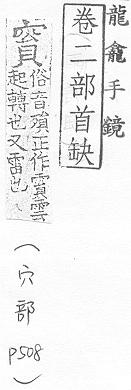 龍龕手鏡
卷二部首缺
𥧑俗音殞正作霣雲
起轉也又雷也
（穴部
p508）